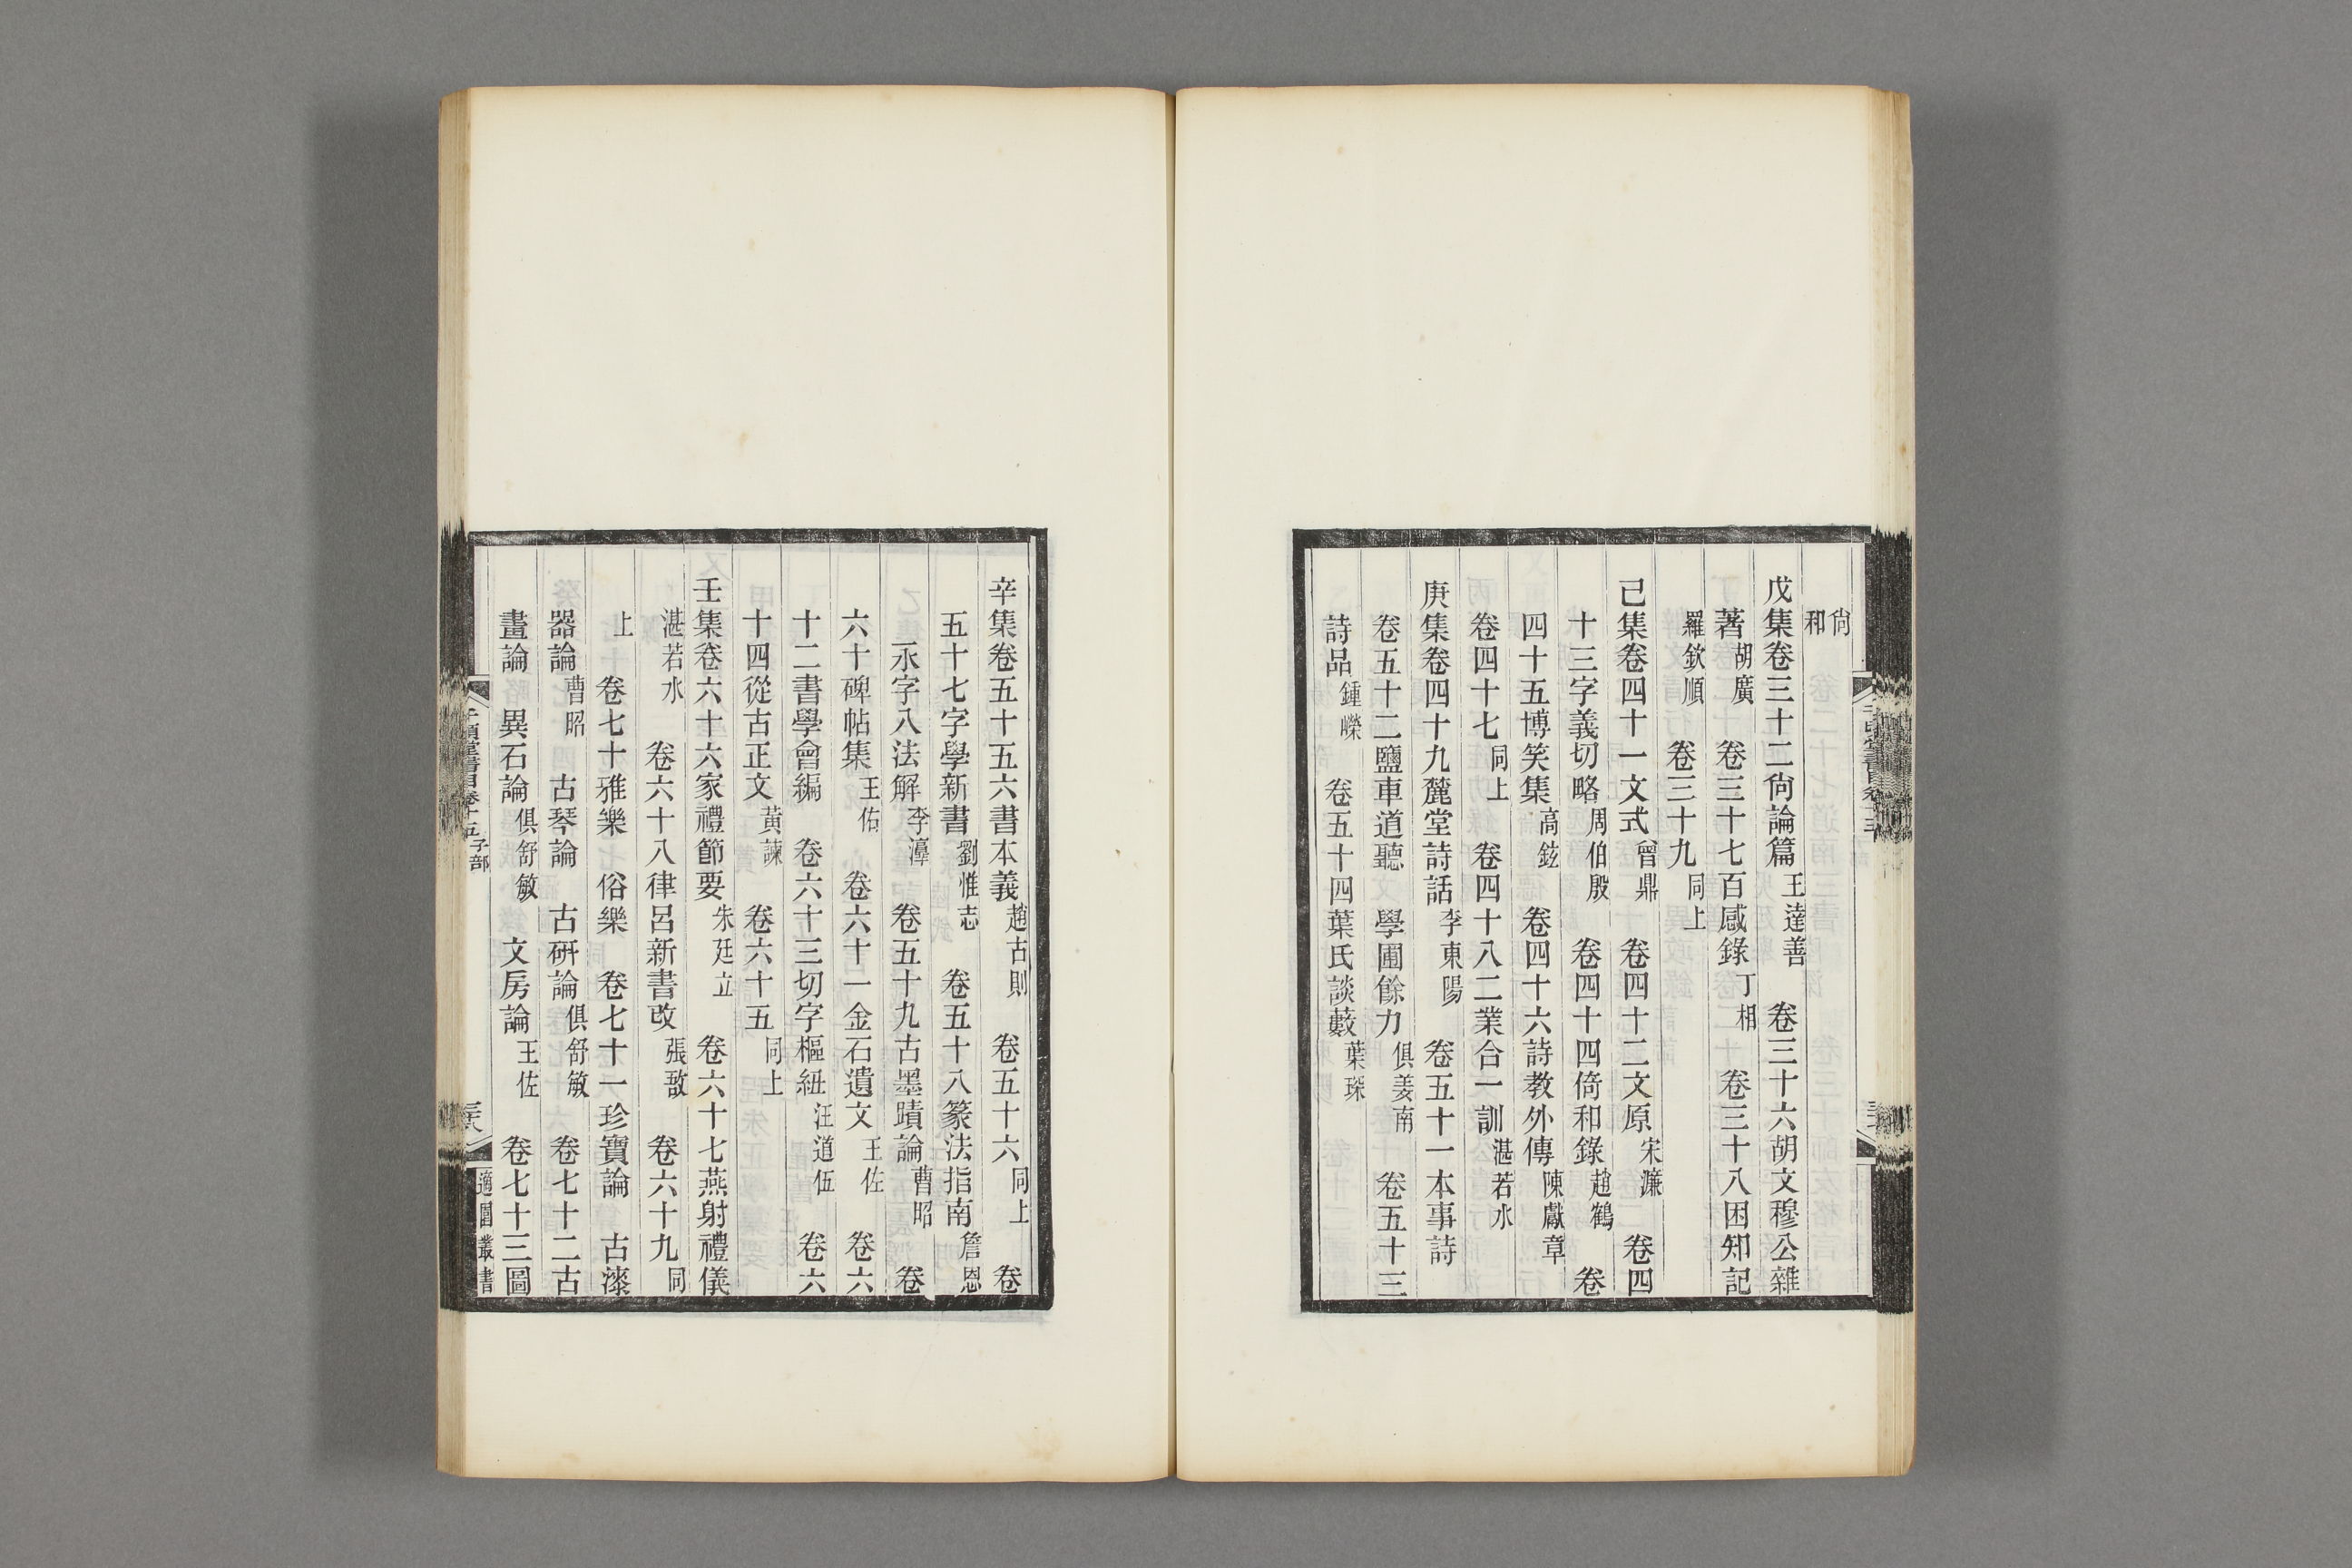 尙和
戊集卷三十二尙論篇王達善　卷三十六胡文穆公雜
著胡廣　卷三十七百感錄丁相　卷三十八困知記
羅欽順　卷三十九同上
己集卷四十一文式曾鼎　卷四十二文原宋濂　卷四
十三字義切略周伯殷　卷四十四倚和錄趙鶴　卷
四十五博笑集高鉉　卷四十六詩教外傳陳獻章
卷四十七同上　卷四十八二業合一訓湛若水
庚集卷四十九麓堂詩話李東陽　卷五十一本事詩
卷五十二鹽車道聽　學圃餘力俱姜南　卷五十三
詩品鍾嶸　卷五十四葉氏談藪葉琛
辛集卷五十五六書本義趙古則　卷五十六同上　卷
五十七字學新書劉惟志　卷五十八篆法指南詹恩
永字八法解李漳　卷五十九古墨蹟論曹昭　卷
六十碑帖集王佑　卷六十一金石遺文王佐　卷六
十二書學會編　卷六十三切字樞紐汪道伍　卷六
十四從古正文黃諫　卷六十五同上
壬集卷六十六家禮節要朱廷立　卷六十七燕射禮儀
湛若水　卷六十八律呂新書改張敔　卷六十九同
上　卷七十雅樂　俗樂　卷七十一珍寶論　古漆
器論曹昭　古琴論　古硏論俱舒敏　卷七十二古
畫論　異石論俱舒敏　文房論王佐　卷七十三圖
千頃堂書目卷十五子部
三十八
適園叢書